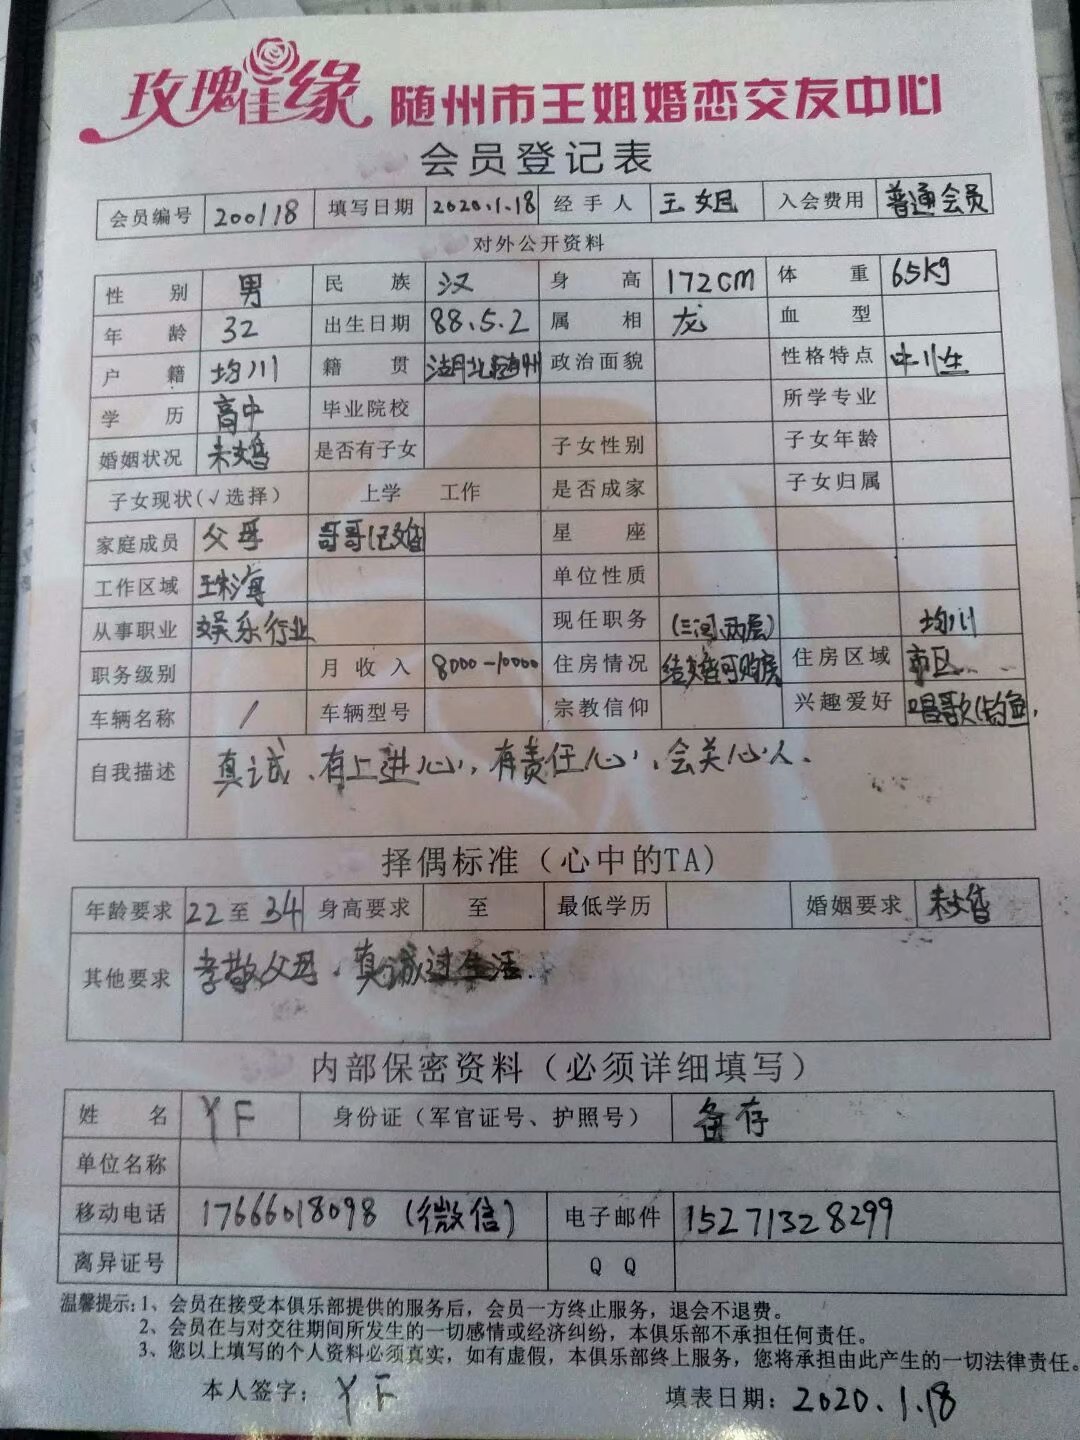 玫瑰佳缘 随州市王姐婚恋交友中心
会员登记表
会员编号 200118 填写日期 2020.1.18 经手人 王姐 入会费用 普通会员
对外公开资料
性别 男 民族 汉 身高 172CM 体重 65Kg
年龄 32 出生日期 88.5.2 属相 龙 血型
户籍 均川 籍贯 湖北随州 政治面貌 性格特点 中性
学历 高中 毕业院校 所学专业
婚姻状况 未婚 是否有子女 子女性别 子女年龄
子女现状(√选择) 上学 工作 是否成家 子女归属
家庭成员 父母 哥哥(已婚) 星座
工作区域 珠海 单位性质
从事职业 娱乐行业 现任职务 (三间、两层) 均川
职务级别 月收入 8000-10000 住房情况 结婚可购房 住房区域 市区
车辆名称 / 车辆型号 宗教信仰 兴趣爱好 唱歌、钓鱼,
自我描述 真诚、有上进心,有责任心、会关心人.
择偶标准(心中的TA)
年龄要求 22至34 身高要求 至 最低学历 婚姻要求 未婚
其他要求 孝敬父母.真诚过生活.
内部保密资料(必须详细填写)
姓名 YF 身份证(军官证号、护照号) 备存
单位名称
移动电话 17666018098 (微信) 电子邮件 15271328299
离异证号 QQ
温馨提示:1、会员在接受本俱乐部提供的服务后,会员一方终止服务,退会不退费。
2、会员在与对交往期间所发生的一切感情或经济纠纷,本俱乐部不承担任何责任。
3、您以上填写的个人资料必须真实,如有虚假,本俱乐部终上服务,您将承担由此产生的一切法律责任。
本人签字: YF 填表日期: 2020.1.18